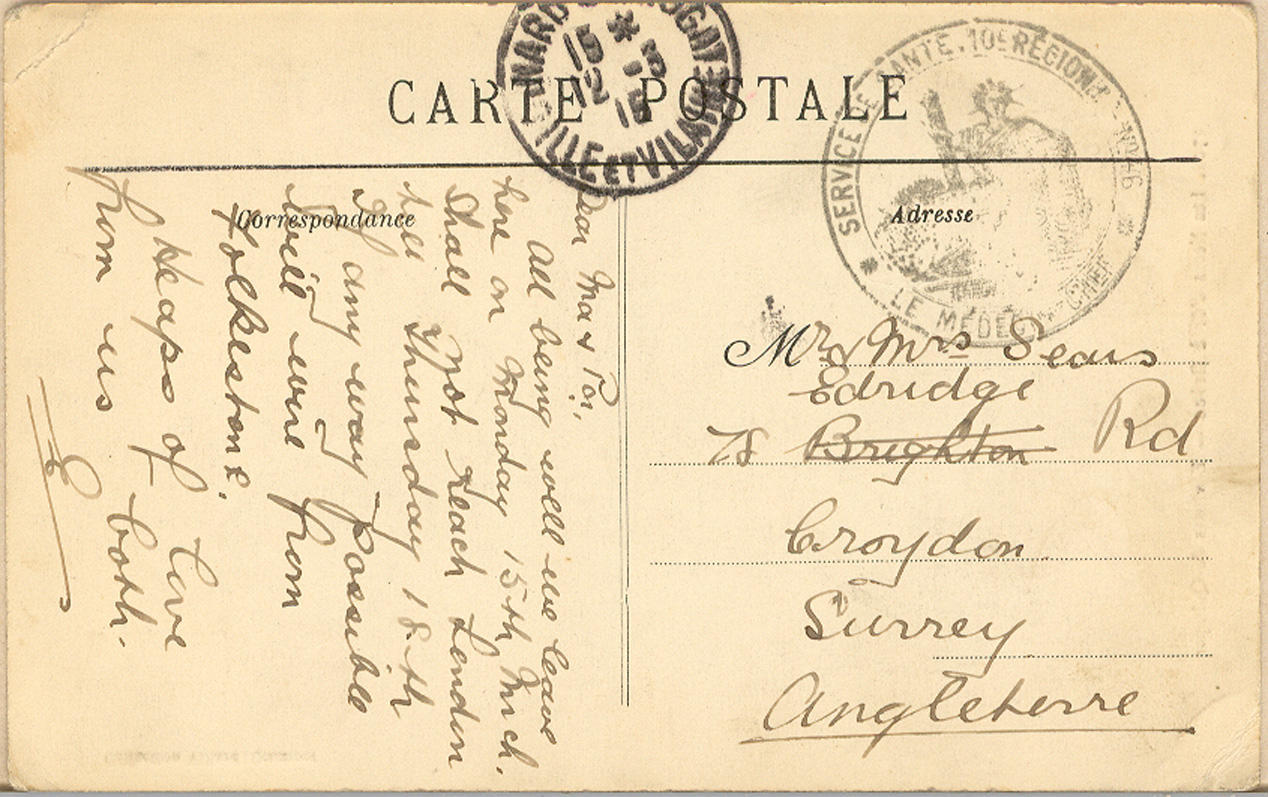 CARTE POSTALE
15 * 3
12 15
ILLE ET VILAINE
SERVICE DE SANTE. 10E REGION No 46
* LE MEDECIN CHEF *
Correspondance
Dear Ma & Pa,
All being well we leave
here on Monday 15th Mch.
Shall not reach London
till Thursday 18th
If any way possible
will wire from
Folkestone.
Heaps of love
from us both.
E
Adresse
Mr & Mrs Sears
Edridge
78 Brighton Rd
Croydon
Surrey
Angleterre